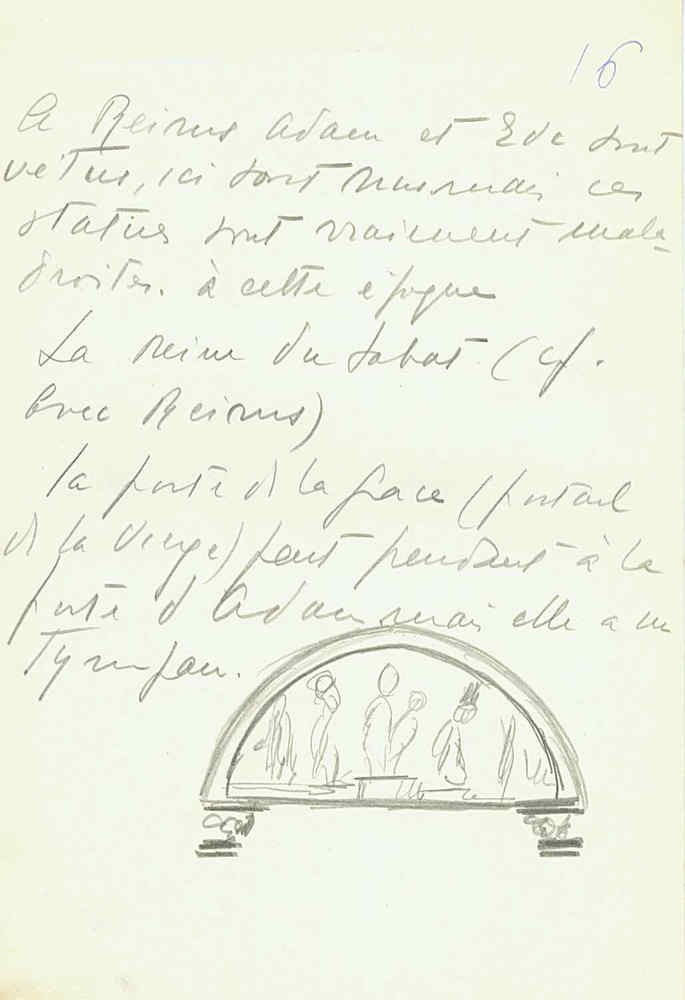 16
A Reims Adam et Eve sont
vêtus, ici sont nus mais ces
statues sont vraiment mala-
droites. à cette époque
La reine du Sabat (cf.
avec Reims)
la porte de la Grace (portail
de la Vierge) fait pendant à la
porte d'Adam mais elle a un
Tympan.